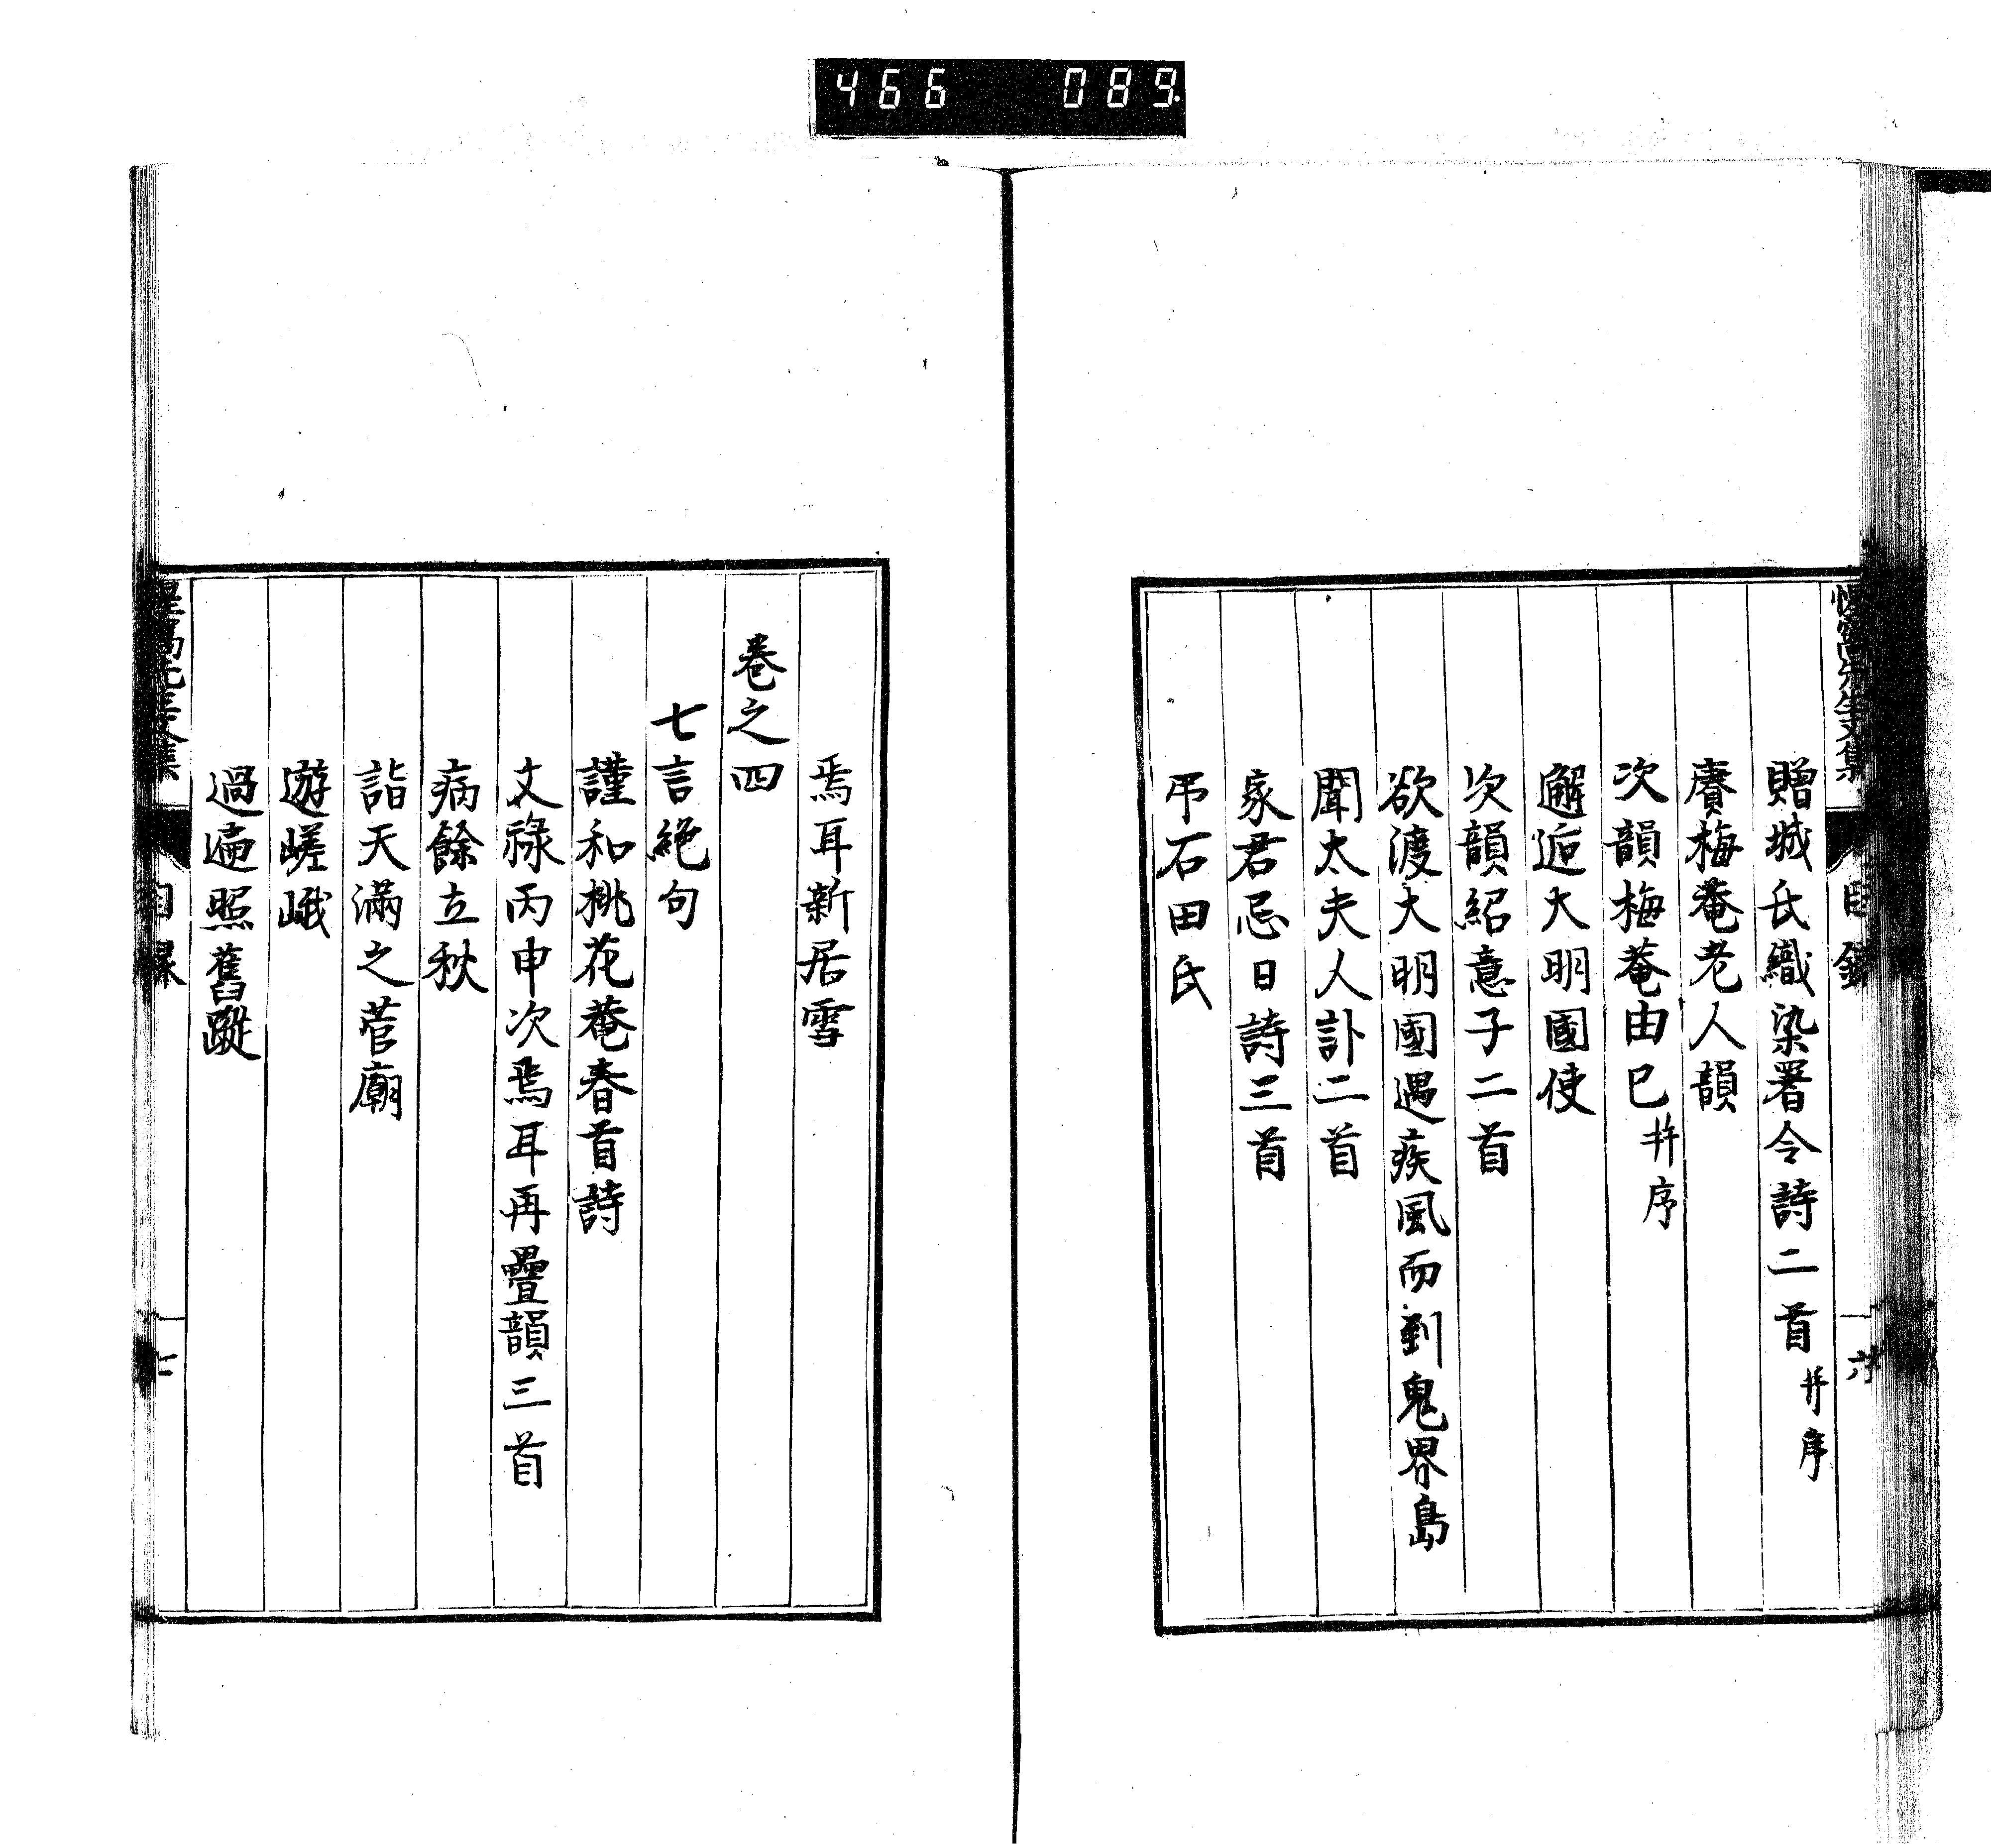 466 089
惺窩先生文集
目錄
十六
贈城氏織染署令詩二首 幷序
賡梅菴老人韻
次韻梅菴由巳 幷序
邂逅大明國使
次韻紹意子二首
欲渡大明國遇疾風而到鬼界島
聞太夫人訃二首
家君忌日詩三首
弔石田氏
焉耳新居雪
卷之四
七言絕句
謹和桃花菴春首詩
文祿丙申次焉耳再疊韻三首
病餘立秋
詣天滿之菅廟
遊嵯峨
過遍照舊蹤
惺窩先生文集
目錄